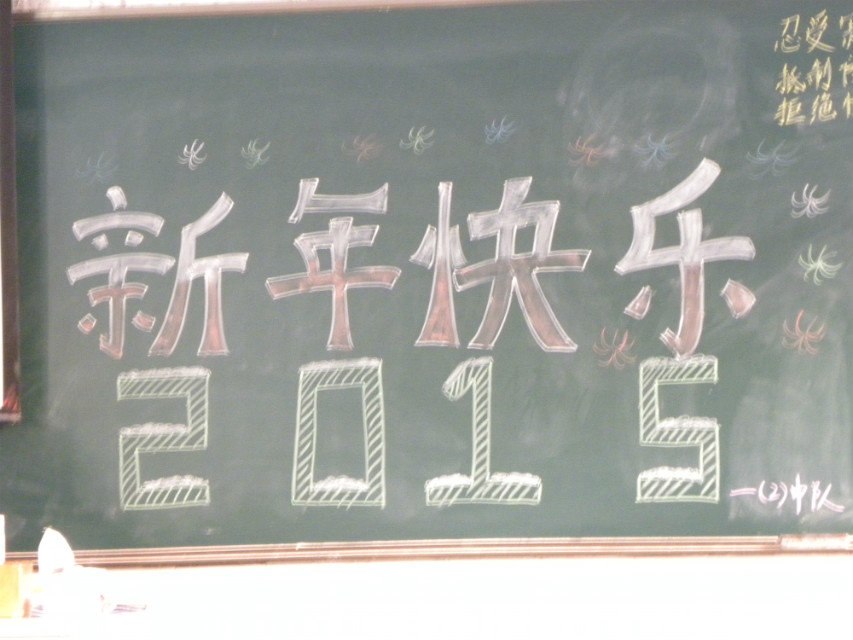 忍受
抵制
拒绝
新年快乐
2015
一(2)中队